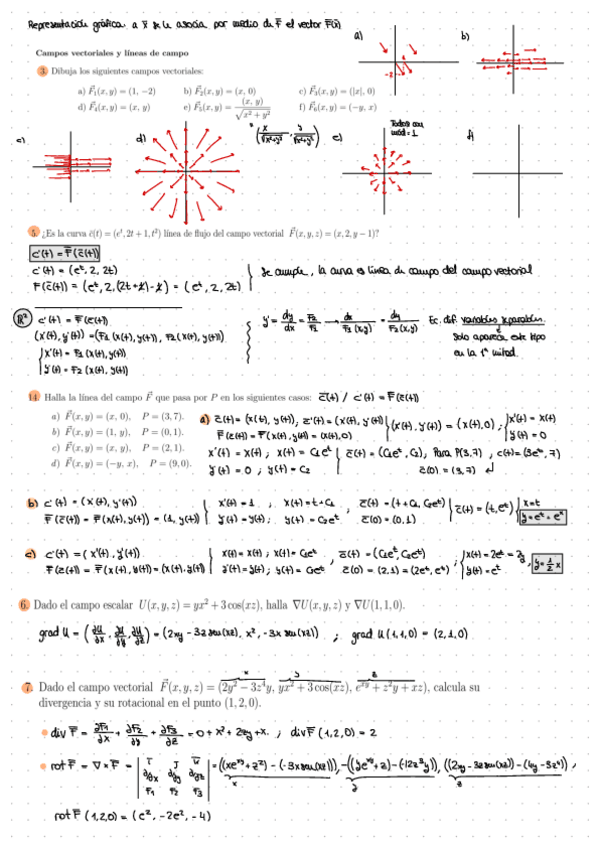 Representación gráfica. a x̄ se le asocia por medio de F̄ el vector F̄(x̄)
Campos vectoriales y líneas de campo
3. Dibuja los siguientes campos vectoriales:
a) F⃗₁(x, y) = (1, −2) b) F⃗₂(x, y) = (x, 0) c) F⃗₃(x, y) = (|x|, 0)
d) F⃗₄(x, y) = (x, y) e) F⃗₅(x, y) = (x, y)/√(x² + y²) f) F⃗₆(x, y) = (−y, x)
a) b)
-2
c) d) (x/√(x²+y²), y/√(x²+y²)) e) Todos con mód = 1 f)
5. ¿Es la curva c⃗(t) = (eᵗ, 2t + 1, t²) línea de flujo del campo vectorial F⃗(x, y, z) = (x, 2, y − 1)?
c'(t) = F̄(c̄(t))
c'(t) = (eᵗ, 2, 2t)
F(c̄(t)) = (eᵗ, 2, (2t+1)-1) = (eᵗ, 2, 2t)
Se cumple, la curva es línea de campo del campo vectorial
R² c'(t) = F̄(c̄(t))
(x'(t), y'(t)) = (F₁(x(t), y(t)), F₂(x(t), y(t)))
x'(t) = F₁(x(t), y(t))
y'(t) = F₂(x(t), y(t))
y' = dy/dx = F₂/F₁ → dx/F₁(x,y) = dy/F₂(x,y)
Ec. dif. variables separables.
Solo aparece este tipo
en la 1ª mitad.
14. Halla la línea del campo F⃗ que pasa por P en los siguientes casos: c̄(t) / c'(t) = F̄(c̄(t))
a) F⃗(x, y) = (x, 0), P = (3, 7).
b) F⃗(x, y) = (1, y), P = (0, 1).
c) F⃗(x, y) = (x, y), P = (2, 1).
d) F⃗(x, y) = (−y, x), P = (9, 0).
a) c̄(t) = (x(t), y(t)); c̄'(t) = (x'(t), y'(t)) (x'(t), y'(t)) = (x(t), 0) x'(t) = x(t)
F̄(c̄(t)) = F̄(x(t), y(t)) = (x(t), 0) y'(t) = 0
x'(t) = x(t); x(t) = C₁eᵗ c̄(t) = (C₁eᵗ, C₂), Para P(3,7), c(t) = (3eᵗ, 7)
y'(t) = 0; y(t) = C₂ c̄(0) = (3,7)
b) c'(t) = (x'(t), y'(t)) x'(t) = 1; x(t) = t + C₁ c̄(t) = (t + C₁, C₂eᵗ) c̄(t) = (t, eᵗ) x = t
F̄(c̄(t)) = F̄(x(t), y(t)) = (1, y(t)) y'(t) = y(t); y(t) = C₂eᵗ c̄(0) = (0,1) y = eᵗ = eˣ
c) c'(t) = (x'(t), y'(t)) x'(t) = x(t); x(t) = C₁eᵗ c̄(t) = (C₁eᵗ, C₂eᵗ) x(t) = 2eᵗ = 2y
F̄(c̄(t)) = F̄(x(t), y(t)) = (x(t), y(t)) y'(t) = y(t); y(t) = C₂eᵗ c̄(0) = (2,1) = (2eᵗ, eᵗ) y(t) = eᵗ y = 1/2 x
6. Dado el campo escalar U(x, y, z) = yx² + 3 cos(xz), halla ∇U(x, y, z) y ∇U(1, 1, 0).
grad U = (∂U/∂x, ∂U/∂y, ∂U/∂z) = (2xy - 3z sen(xz), x², -3x sen(xz)); grad U(1,1,0) = (2,1,0)
7. Dado el campo vectorial F⃗(x, y, z) = (2y² − 3z⁴y, yx² + 3 cos(xz), eˣʸ + z²y + xz), calcula su
divergencia y su rotacional en el punto (1, 2, 0).
div F̄ = ∂F₁/∂x + ∂F₂/∂y + ∂F₃/∂z = 0 + x² + 2zy + x. ; div F̄(1,2,0) = 2
rot F̄ = ∇ × F̄ = | i j k ∂/∂x ∂/∂y ∂/∂z F₁ F₂ F₃ | = ((xeˣʸ + z²) - (-3x sen(xz))), -((yeˣʸ + z) - (-12z³y)), ((2xy - 3z sen(xz)) - (4y - 3z⁴)),
rot F̄(1,2,0) = (e², -2e², -4)